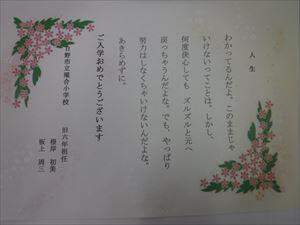 人生
わかってるんだよ。このままじゃ
いけないってことは。しかし、
何度決心しても ズルズルと元へ
戻っちゃうんだよな。でも、やっぱり
努力はしなくちゃいけないんだよな。
あきらめずに。
ご入学おめでとうございます
野市立滝合小学校
旧六年担任
根岸 初美
坂上 周三